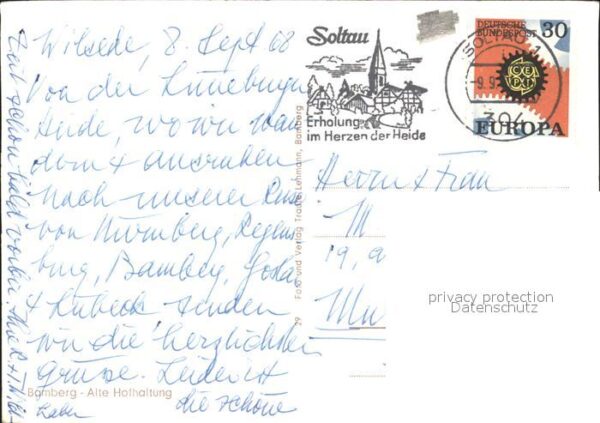 Wilsede, 8. Sept 68
Von der Lüneburger
Heide, wo wir wan
dern + ausruhen
nach unserer Reise
von Nürnberg, Regens
burg, Bamberg, Goslar
+ Lübeck senden
wir die herzlichsten
Grüsse. Leider ist
die schöne
Zeit schon bald vorbei
Soltau
Erholung
im Herzen der Heide
SOLTAU 1
-9.9
304
DEUTSCHE
BUNDESPOST
30
CEPT
EUROPA
Herrn + Frau
M
19, a
Mu
privacy protection
Datenschutz
29 Foto und Verlag Lehmann, Bamberg
Bamberg - Alte Hofhaltung